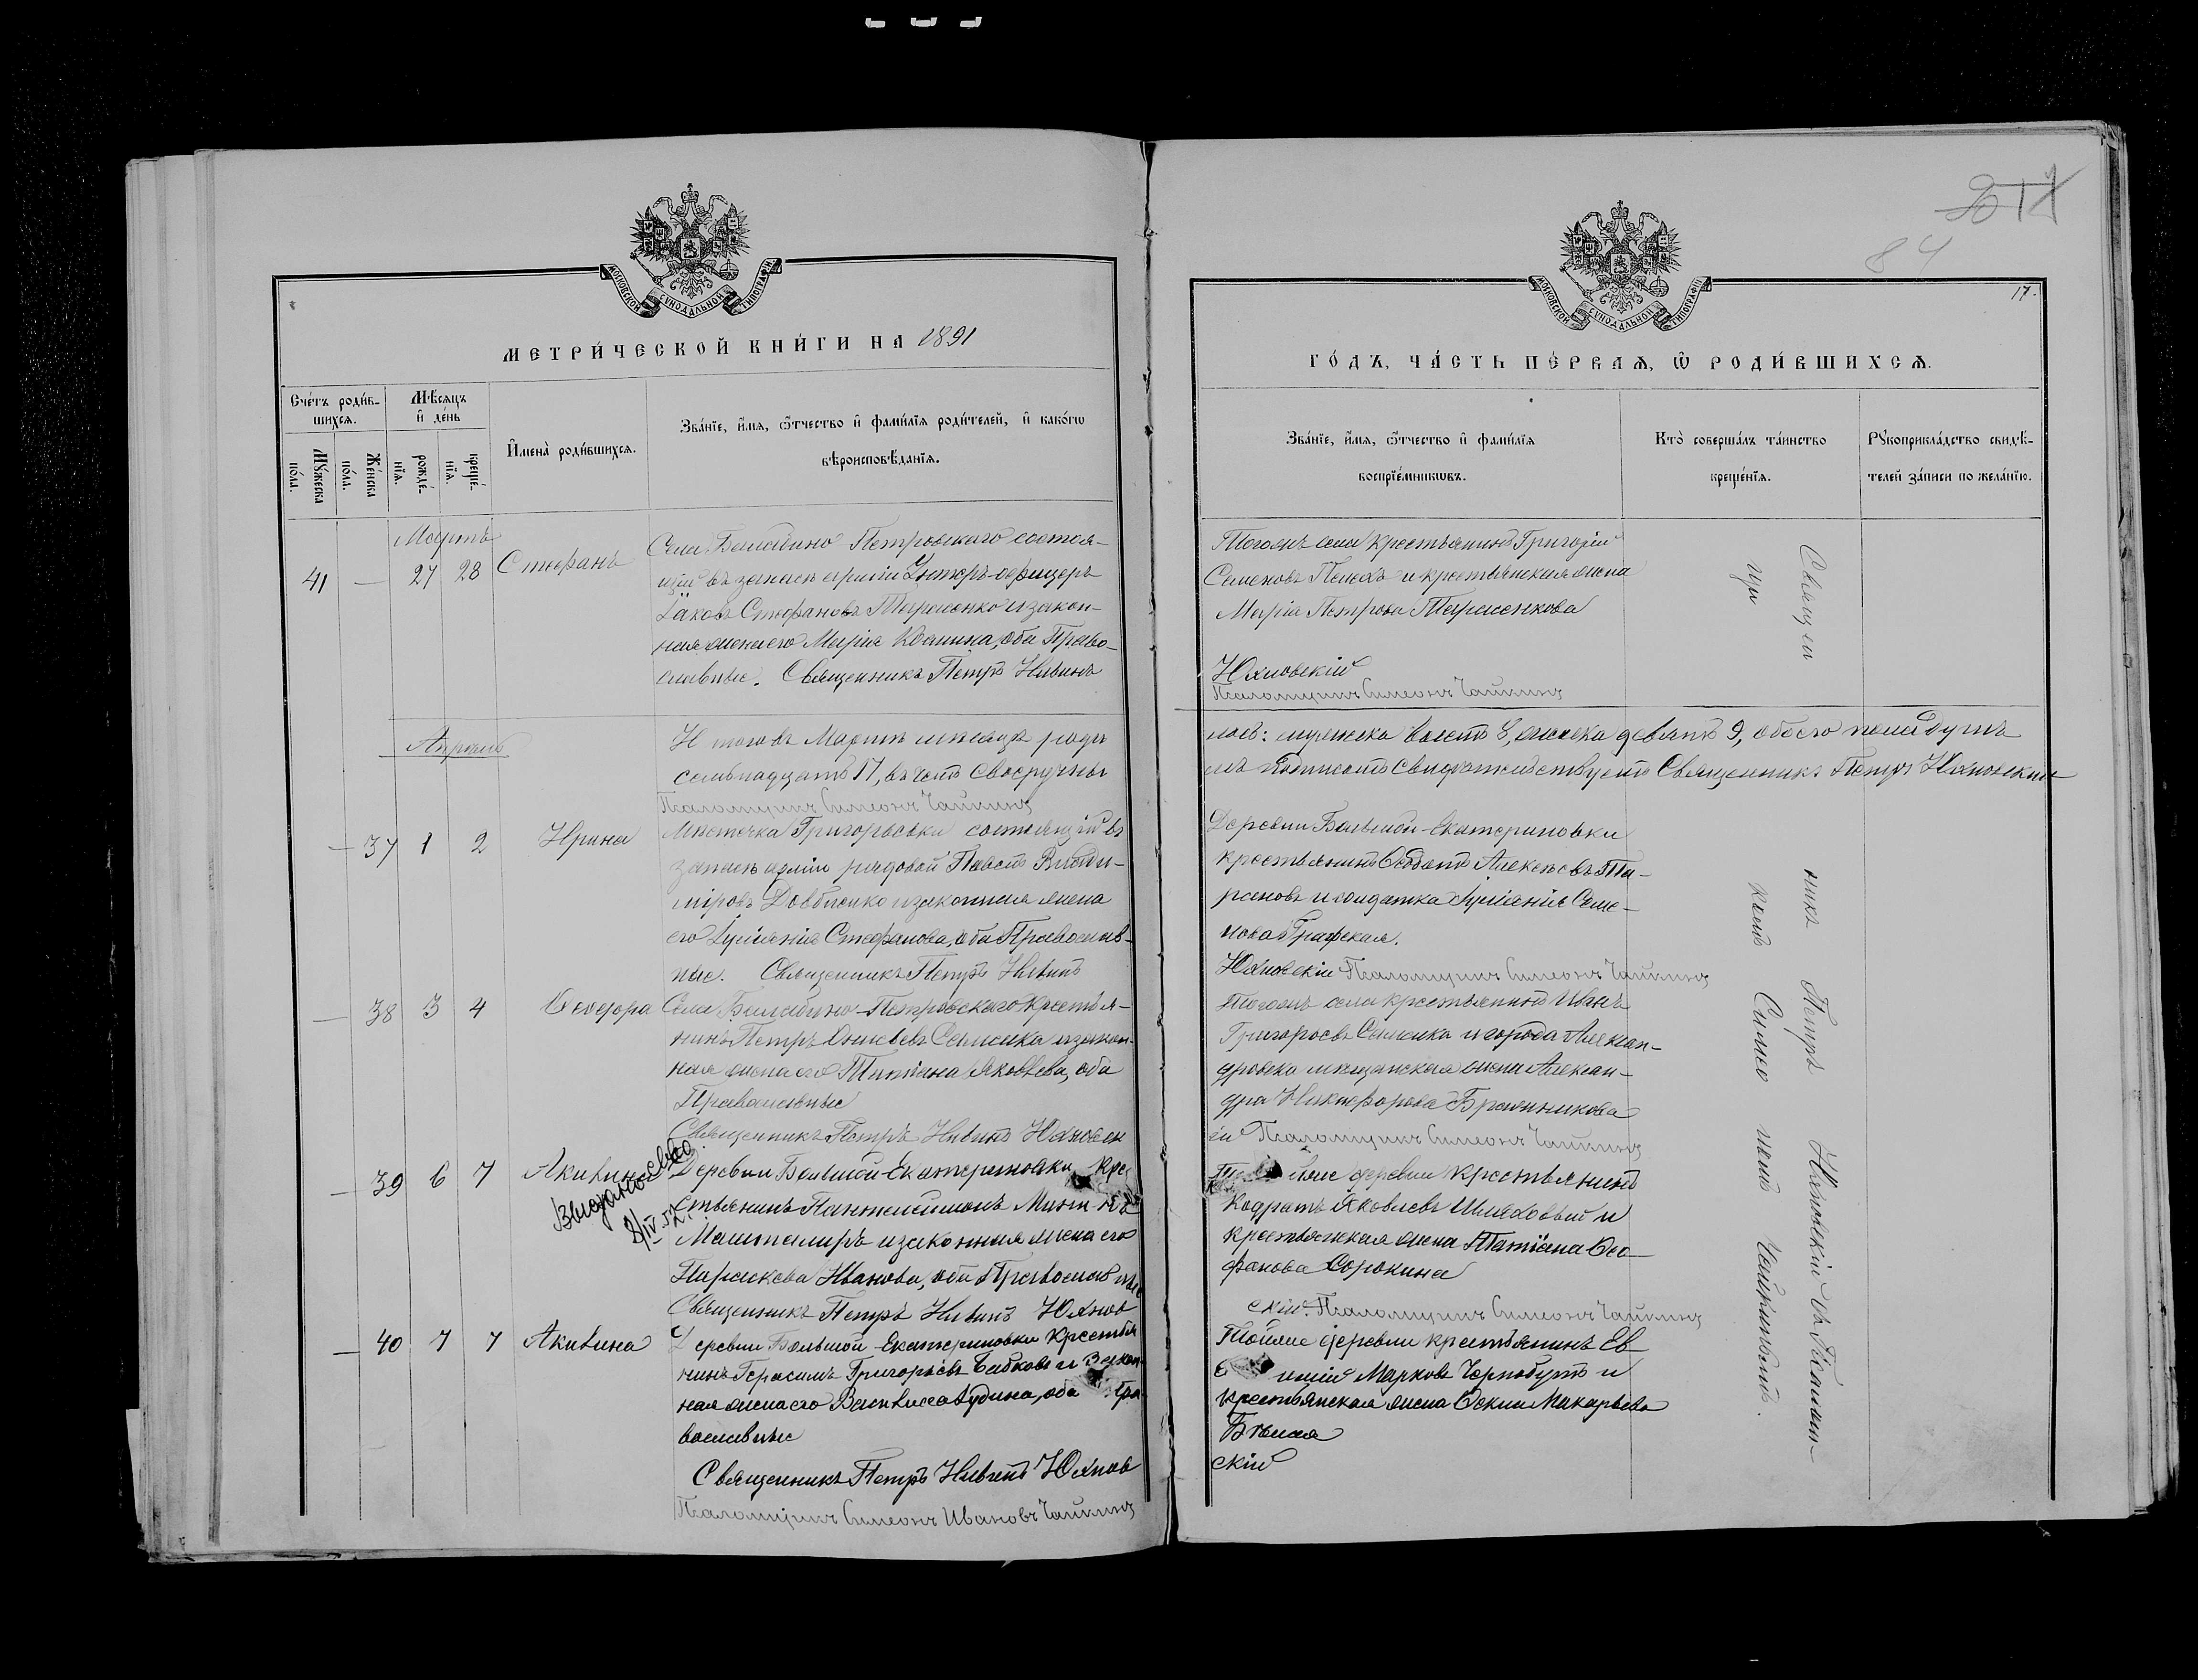 МОСКОВСКОЙ СѴНОДАЛЬНОЙ ТИПОГРАФІИ
МЕТРИ́ЧЕСКОЙ КНИ́ГИ НА 1891
Сче́тъ роди́в-
шихсѧ.
Мѣ́сѧцъ
и҆ де́нь
Мꙋ́жеска
по́ла.
Же́нска
по́ла.
рожде́-
нїѧ.
креще́-
нїѧ.
И҆мена̀ роди́вшихсѧ.
Зва́нїе, и҆́мѧ, ѻ҆́тчество и҆ фами́лїѧ роди́телей, и҆ како́гѡ
вѣроисповѣ́данїѧ.
Мартъ
41 — 27 28 Стефанъ
Села Балабино Петровскаго состоя-
щій въ запасѣ арміи Унтеръ-офицеръ
Іаковъ Стефановъ Тарасенко и закон-
ная жена его Марія, оба Право-
славные. Священникъ Петръ Нивинъ
Апрель
Итого въ Мартѣ мѣсяцѣ роди
семьнадцать 17, въ чемъ своеручны
Псаломщикъ Симеонъ Чайкинъ
— 37 1 2 Ирина
Мѣстечка Григорьевки состоящій въ
запасѣ арміи рядовой Павелъ Влади-
міровъ Довбненко и законная жена
его Іуліанія Стефанова, оба Православ-
ные. Священникъ Петръ Нивинъ
— 38 3 4 Ѳеодора
Села Балабино-Петровскаго Крестья-
нинъ Петръ Семенка и закон-
ная жена его Татіана Яковлева, оба
Православные
Священникъ Петръ Нивинъ Юхновск
— 39 6 7 Акилина
Выдано св-во
8/IV 52.
Деревни Большой-Екатериновки, Кре
стьянинъ Пантелеимонъ
Машталиръ и законная жена его
Параскева Иванова, оба Православные
Священникъ Петръ Нивинъ Юхнов
— 40 7 7 Акилина
Деревни Большой-Екатериновки Крестья
нинъ Герасимъ Григорьевъ Бабковъ и Закон
ная жена его Василисса, оба Пра
вославные
Священникъ Петръ Нивинъ Юхнов
Псаломщикъ Симеонъ Ивановъ Чайкинъ
84
17.
МОСКОВСКОЙ СѴНОДАЛЬНОЙ ТИПОГРАФІИ
ГО́ДЪ, ЧА́СТЬ ПЕ́РВАѦ, Ѡ҆ РОДИ́ВШИХСѦ.
Зва́нїе, и҆́мѧ, ѻ҆́тчество и҆ фами́лїѧ
воспрїе́мникѡвъ.
Кто̀ соверша́лъ та́инство
креще́нїѧ.
Рꙋкоприкла́дство свидѣ́-
телей за́писи по жела́нїю.
Тогожъ села крестьянинъ Григорій
Семеновъ Пелехъ и крестьянская жена
Марія Петрова Тарасенкова
Юхновскій
Псаломщикъ Симеонъ Чайкинъ
лось: мужеска восемь 8, женска девять 9, обоего пола душъ
мъ подписомъ свидѣтельствуемъ Священникъ Петръ Юхновскій
Деревни Большой-Екатериновки
крестьянинъ Ѳеодотъ Алексѣевъ Та-
рановъ и солдатка Іуліанія Семе-
нова Графская.
Юхновскій Псаломщикъ Симеонъ Чайкинъ
Тогожъ села крестьянинъ Иванъ
Григорьевъ Семенка и города Алексан-
дровска мѣщанская жена Алексан-
дра Никифорова Бражникова
ій Псаломщикъ Симеонъ Чайкинъ
Тойже деревни крестьянинъ
Кодратъ Яковлевъ Шляховый и
крестьянская жена Татіана Ѳео-
фанова Сорокина
скій. Псаломщикъ Симеонъ Чайкинъ
Тойже деревни крестьянинъ Ев
Марковъ Чернобутъ и
крестьянская жена Ѳекла Макарьева
Бѣлая
скій
Священникъ Петръ Юхновскій съ Псаломщикомъ Симеономъ Чайкинымъ.